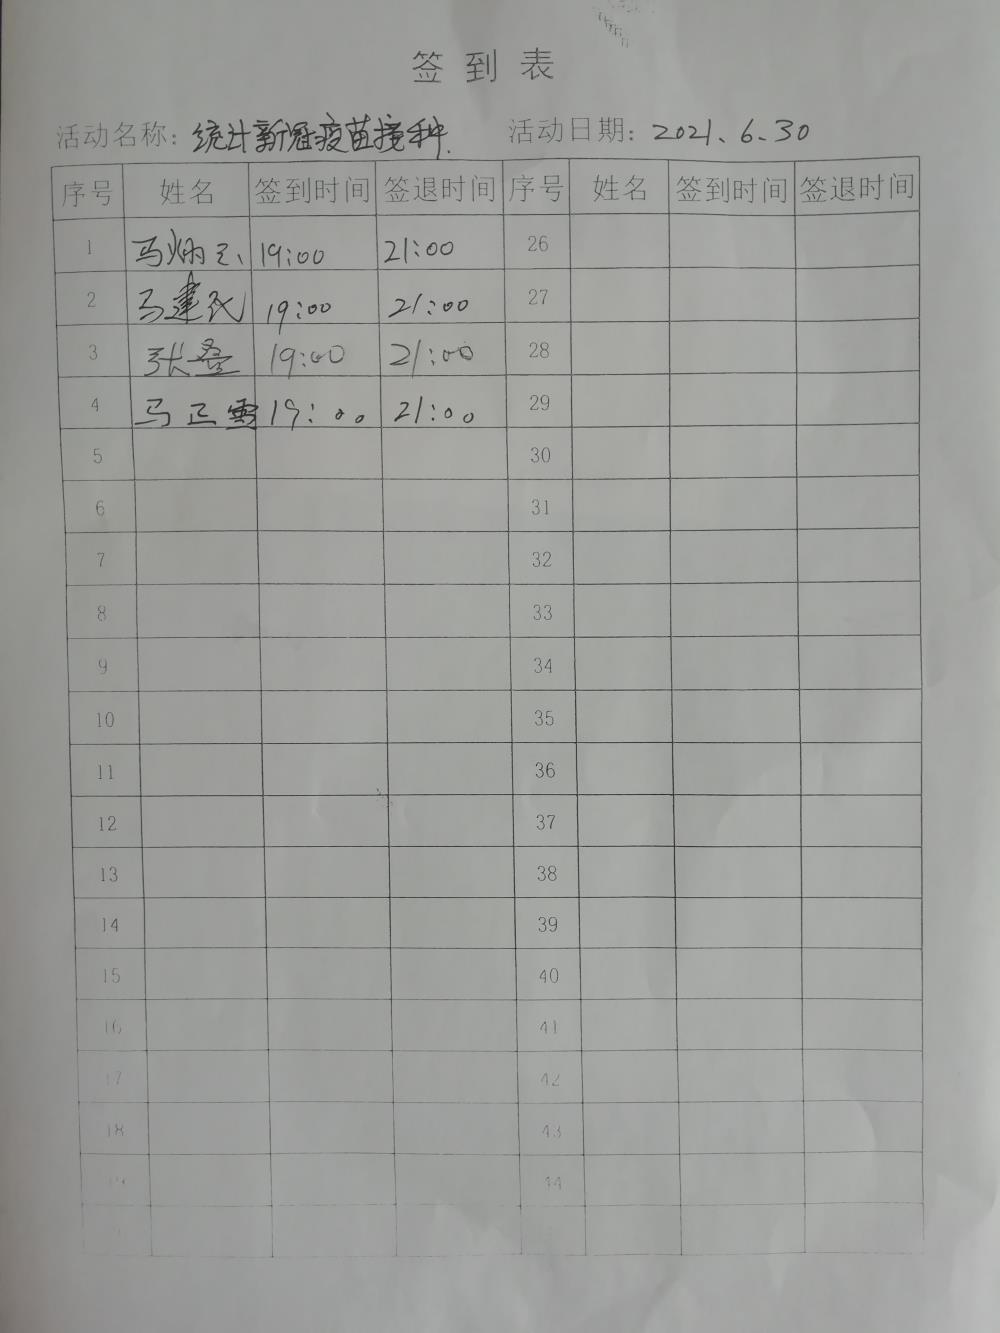 签到表
活动名称: 统计新冠疫苗接种. 活动日期: 2021.6.30
序号 姓名 签到时间 签退时间 序号 姓名 签到时间 签退时间
1 马炳 19:00 21:00 26
2 马建民 19:00 21:00 27
3 张 19:00 21:00 28
4 马正雪 19:00 21:00 29
5 30
6 31
7 32
8 33
9 34
10 35
11 36
12 37
13 38
14 39
15 40
16 41
17 42
18 43
19 44